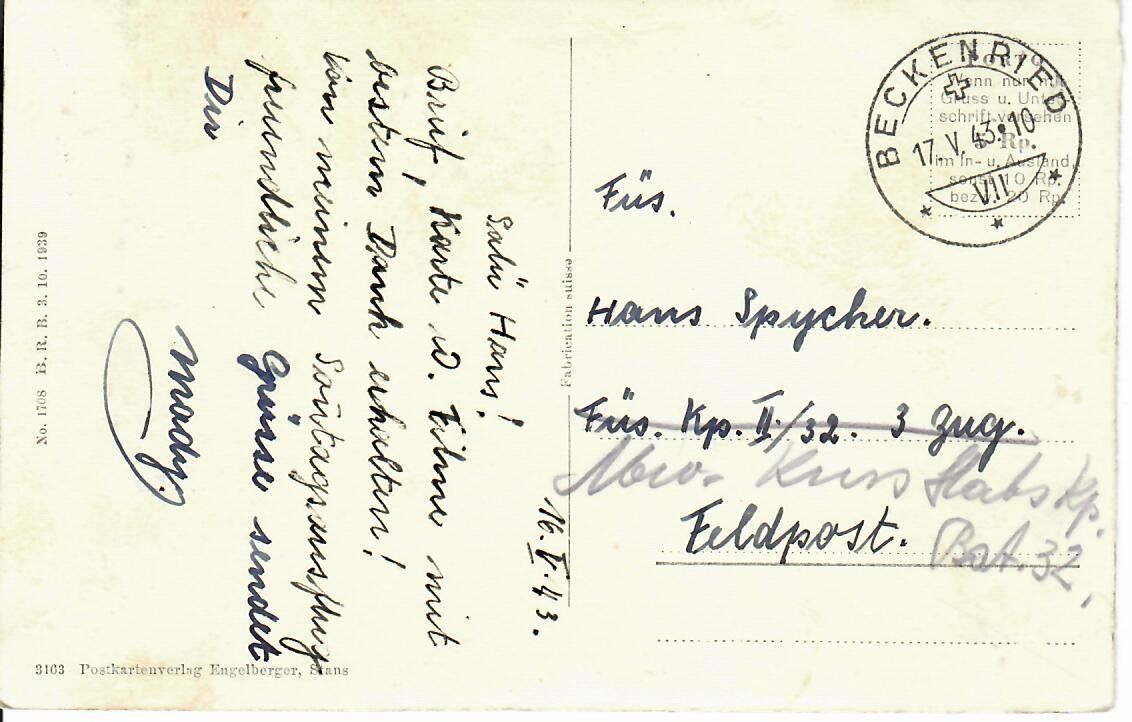 16. V. 43.
Salü Hans!
Brief, Karte u. Filme mit
bestem Dank erhalten!
Von meinem Sontagsausflug
freundliche Grüsse sendet
Dir
Mady.
Füs.
Hans Spycher.
Füs. Kp. II/32. 3 Zug.
Kurs Stabs Kp.
Feldpost.
Bat. 32.
BECKENRIED
17. V. 43. 10
VII
Porto
Wenn nur mit
Gruss u. Unter-
schrift versehen
5 Rp.
im In- u. Ausland
sonst 10 Rp.
bezw. 20 Rp.
Fabrication suisse
No. 1708 B. R. B. 3. 10. 1939
3163 Postkartenverlag Engelberger, Stans